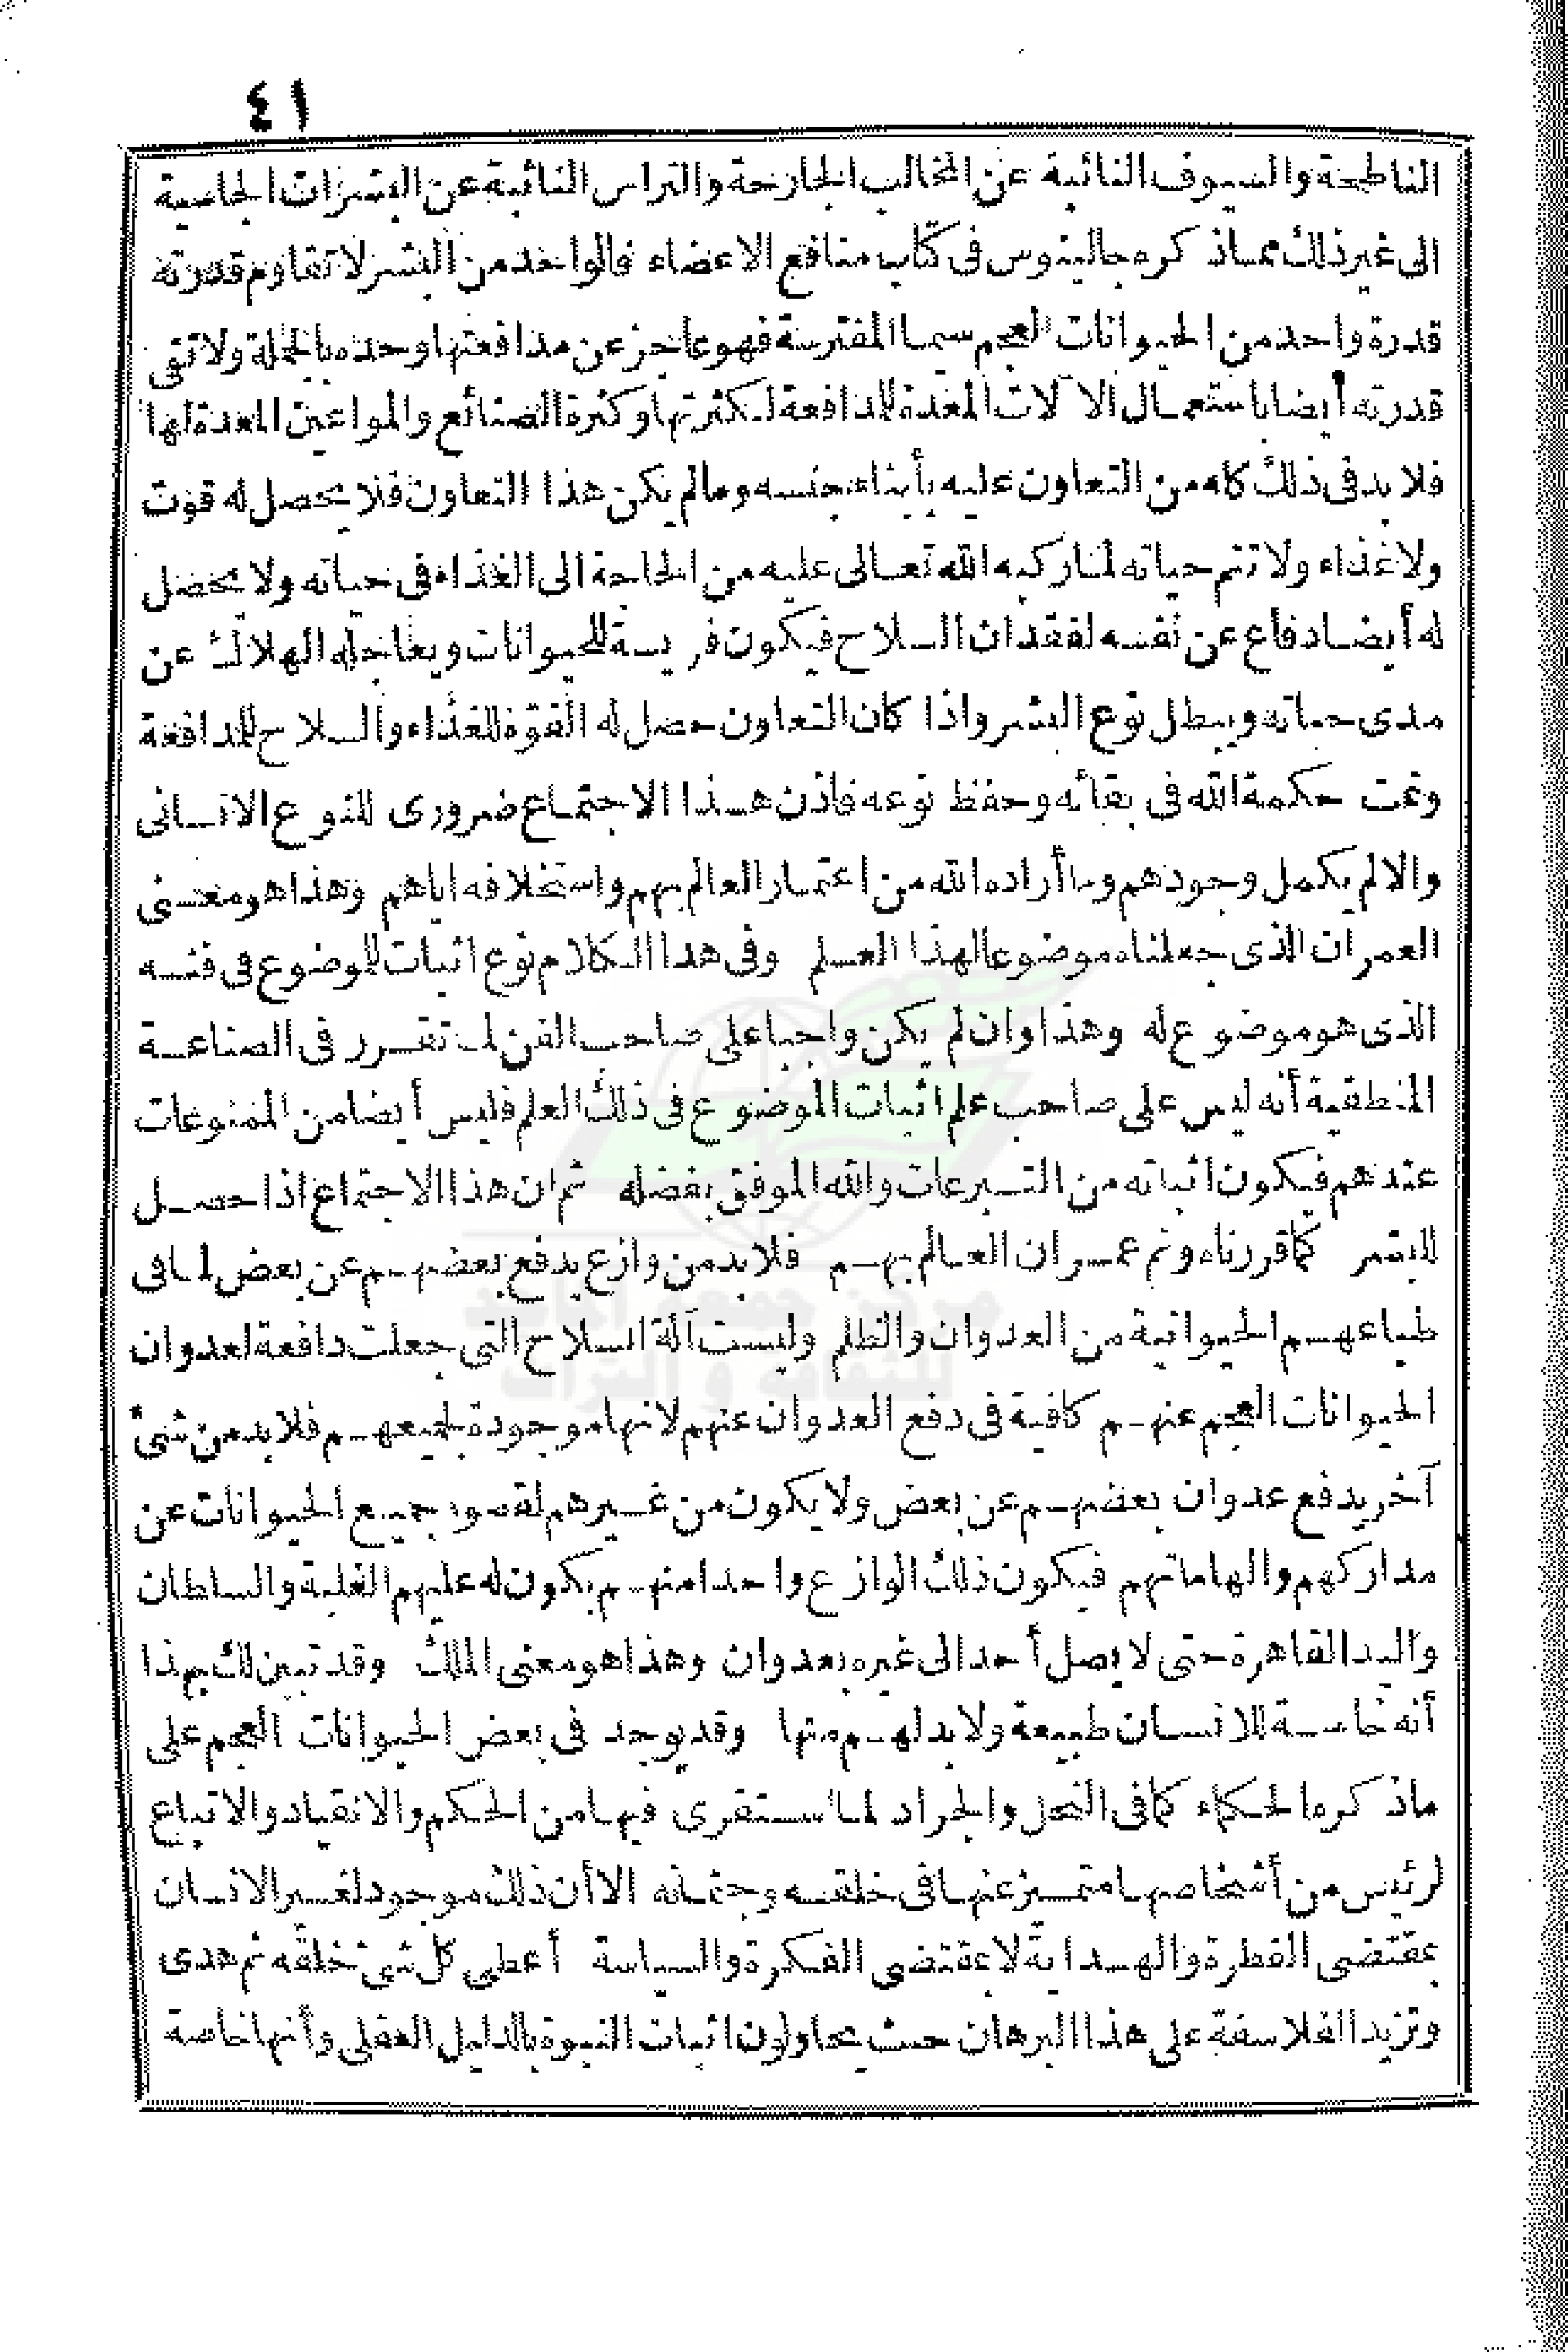 ٤١
الناطحة والسيوف النائبة عن المخالب الجارحة والتراس النائبة عن البشرات الجاسية
الى غير ذلك مماذكره جالينوس فى كتاب منافع الاعضاء فالواحد من البشر لا تقاوم قدرته
قدرة واحد من الحيوانات العجم سيما المفترسة فهو عاجز عن مدافعتها وحده بالجملة ولا تفى
قدرته أيضا باستعمال الآلات المعدة للمدافعة لكثرتها وكثرة الصنائع والمواعين المعدة لها
فلا بد فى ذلك كله من التعاون عليه بأبناء جنسه ومالم يكن هذا التعاون فلا يحصل له قوت
ولا غذاء ولا تتم حياته لما ركبه الله تعالى عليه من الحاجة الى الغذاء فى حياته ولا يحصل
له أيضا دفاع عن نفسه لفقدان السلاح فيكون فريسة للحيوانات ويعاجله الهلاك عن
مدى حياته ويبطل نوع البشر واذا كان التعاون حصل له القوت للغذاء والسلاح للمدافعة
وتمت حكمة الله فى بقائه وحفظ نوعه فاذن هذا الاجتماع ضرورى للنوع الانسانى
والا لم يكمل وجودهم وما أراده الله من اعتمار العالم بهم واستخلافه اياهم وهذا هو معنى
العمران الذى جعلناه موضوعا لهذا العلم وفى هذا الكلام نوع اثبات للموضوع فى فنه
الذى هو موضوع له وهذا وان لم يكن واجبا على صاحب الفن لما تقرر فى الصناعة
المنطقية أنه ليس على صاحب علم اثبات الموضوع فى ذلك العلم فليس أيضا من الممنوعات
عندهم فيكون اثباته من التبرعات والله الموفق بفضله ثم ان هذا الاجتماع اذا حصل
للبشر كما قررناه وتم عمران العالم بهم فلا بد من وازع يدفع بعضهم عن بعض لما فى
طباعهم الحيوانية من العدوان والظلم وليست آلة السلاح التى جعلت دافعة لعدوان
الحيوانات العجم عنهم كافية فى دفع العدوان عنهم لانها موجودة لجميعهم فلا بد من شئ
آخر يدفع عدوان بعضهم عن بعض ولا يكون من غيرهم لقصور جميع الحيوانات عن
مداركهم والهاماتهم فيكون ذلك الوازع واحدا منهم يكون له عليهم الغلبة والسلطان
واليد القاهرة حتى لا يصل أحد الى غيره بعدوان وهذا هو معنى الملك وقد تبين لك بهذا
أنه خاصة للانسان طبيعة ولا بد لهم منها وقد يوجد فى بعض الحيوانات العجم على
ماذكره الحكماء كما فى النحل والجراد لما استقرى فيها من الحكم والانقياد والاتباع
لرئيس من أشخاصها متميز عنها فى خلقه وجثمانه الا أن ذلك موجود لغير الانسان
بمقتضى الفطرة والهداية لا بمقتضى الفكرة والسياسة أعطى كل شئ خلقه ثم هدى
وتزيد الفلاسفة على هذا البرهان حيث يحاولون اثبات النبوة بالدليل العقلى وأنها خاصة
مركز جمعة الماجد
للثقافة و التراث